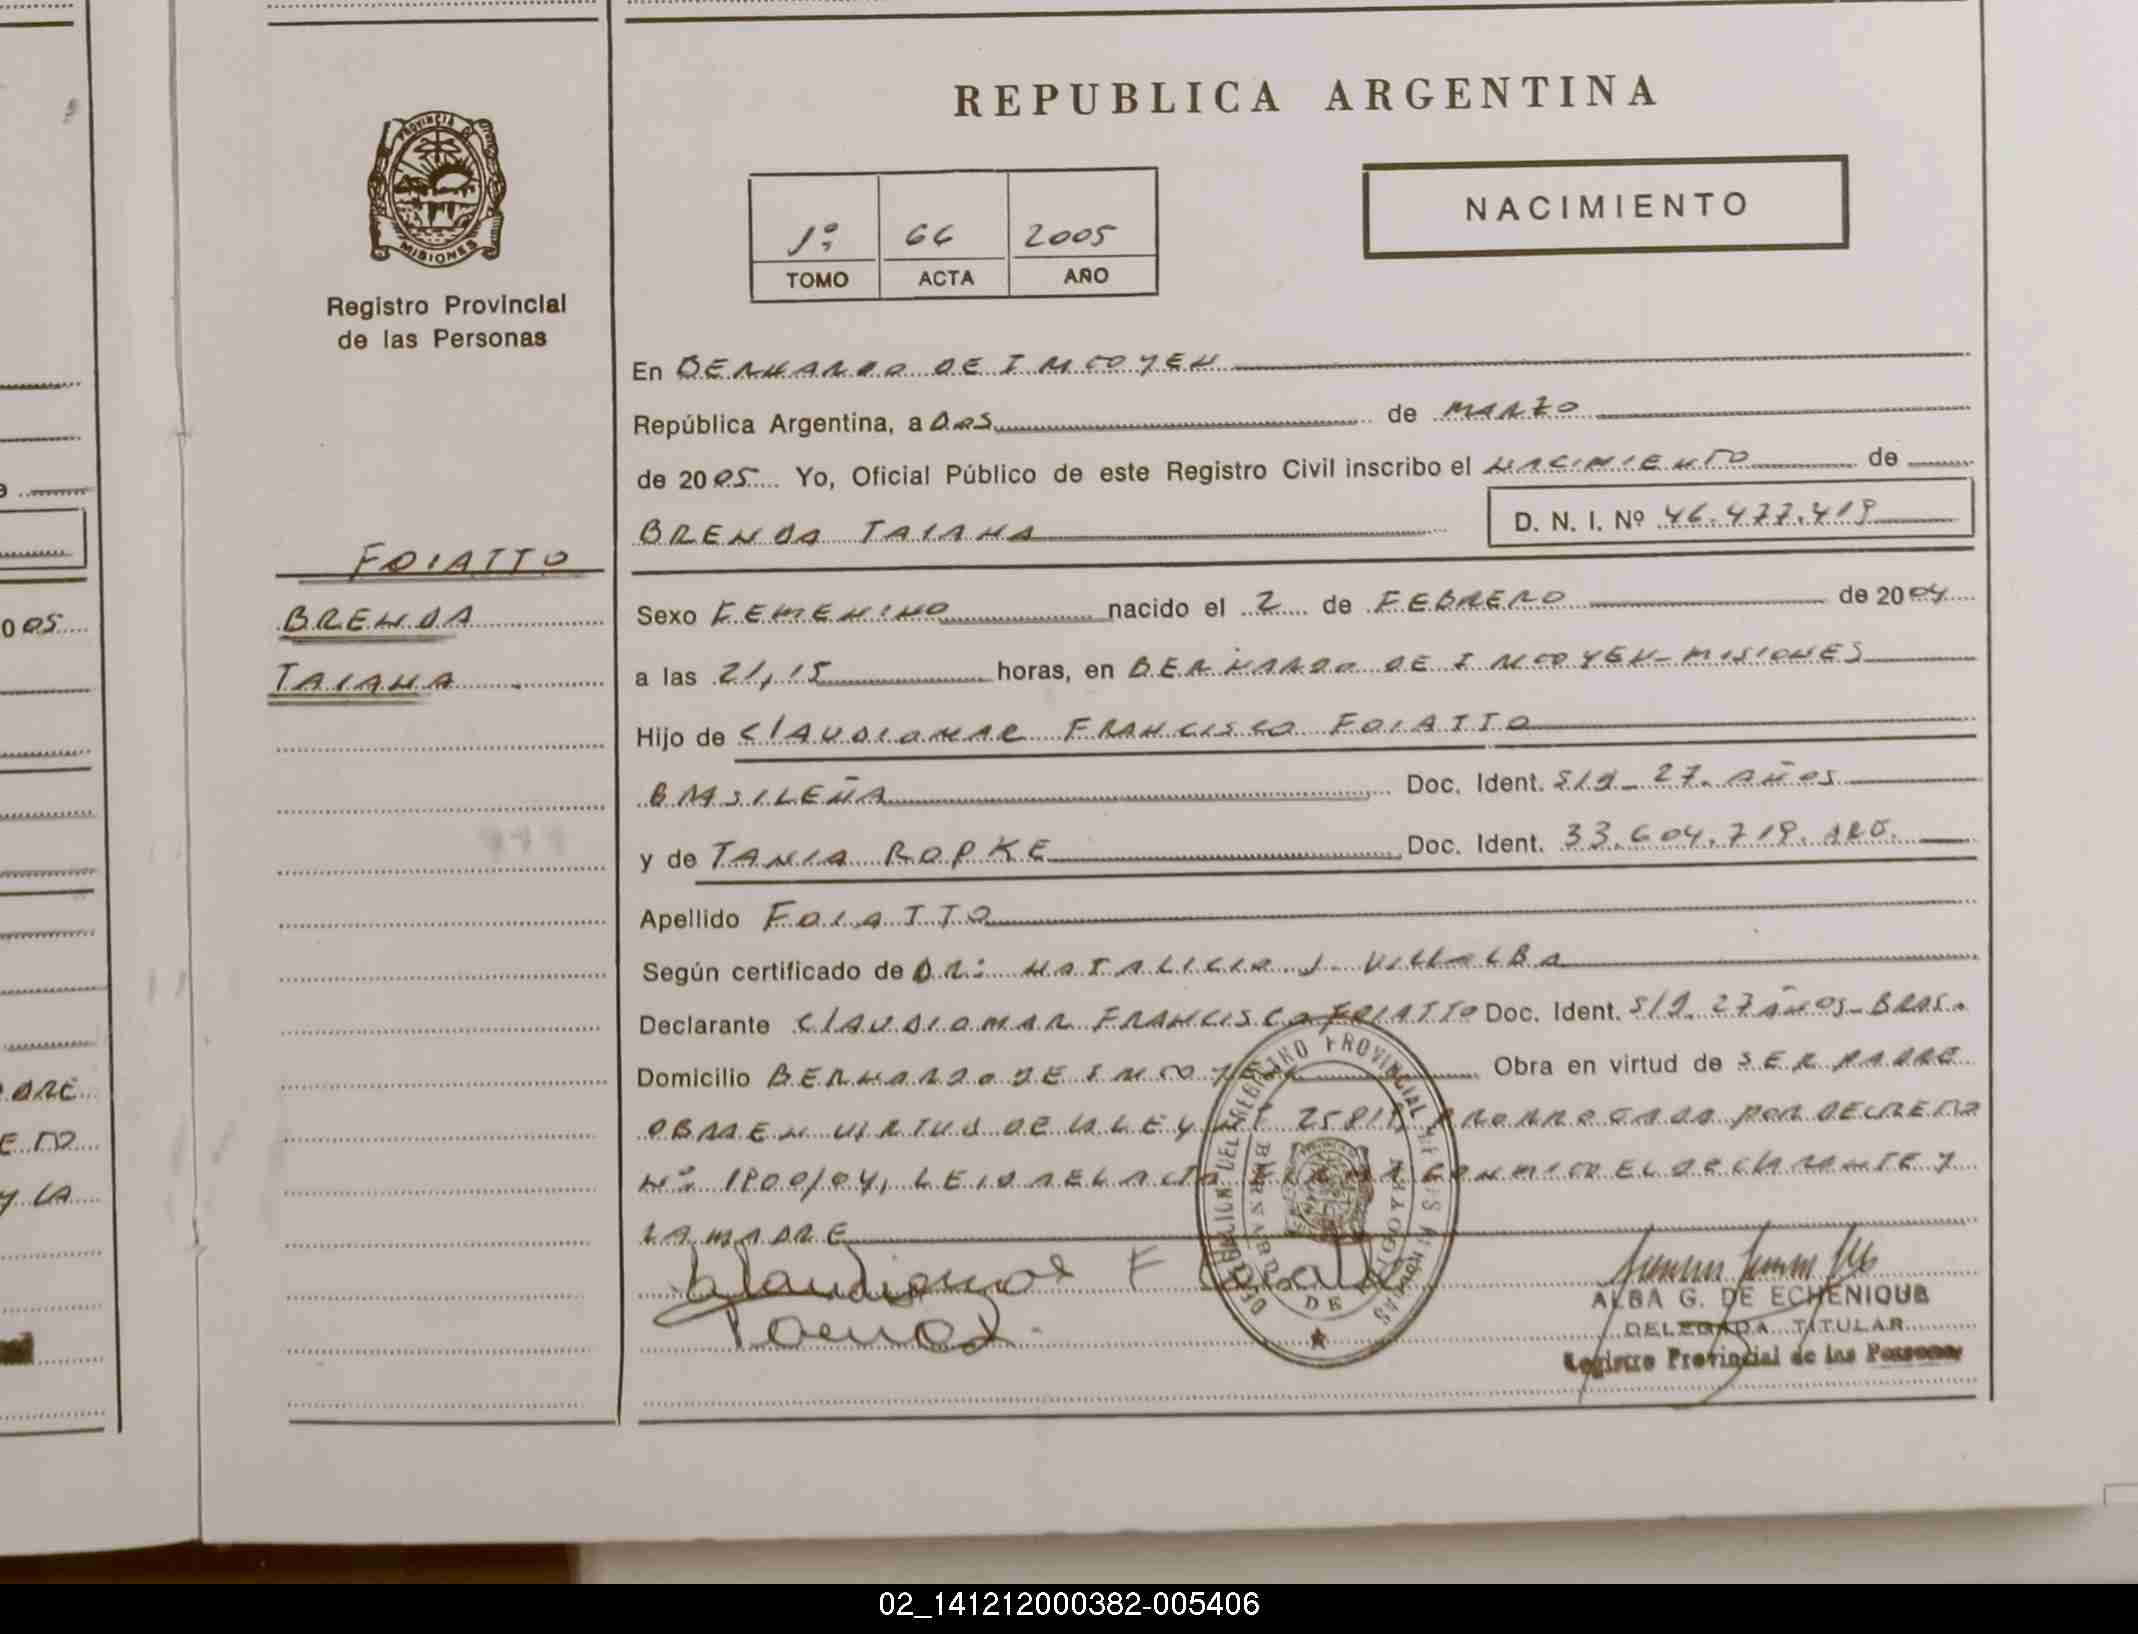 REPUBLICA ARGENTINA
PROVINCIA DE
MISIONES
Registro Provincial
de las Personas
1º 66 2005
TOMO ACTA AÑO
NACIMIENTO
En BERNARDO DE IRIGOYEN
República Argentina, a DOS de MARZO
de 2005 Yo, Oficial Público de este Registro Civil inscribo el NACIMIENTO de
BRENDA TAIANA D. N. I. Nº 46.477.419
FOIATTO
BRENDA
TAIANA
Sexo FEMENINO nacido el 2 de FEBRERO de 2004
a las 21,15 horas, en BERNARDO DE IRIGOYEN-MISIONES
Hijo de CLAUDIOMAR FRANCISCO FOIATTO
BRASILEÑA Doc. Ident. S/D. 27. AÑOS
y de TANIA ROPKE Doc. Ident. 33.604.719. ARG.
Apellido FOIATTO
Según certificado de DR: NATALICIO J. VILLALBA
Declarante CLAUDIOMAR FRANCISCO FOIATTO Doc. Ident. S/D. 27 AÑOS-BRAS.
Domicilio BERNARDO DE IRIGOYEN Obra en virtud de SER PADRE
OBRA EN VIRTUD DE LA LEY Nº 25819, PRORROGADA POR DECRETO
Nº: 1800/04, LEIDA EL ACTA FIRMA CONMIGO EL DECLARANTE Y
LA MADRE
Claudiomar F Foiatto
DELEGACION DEL REGISTRO PROVINCIAL DE LAS PERSONAS
BERNARDO DE IRIGOYEN
ALBA G. DE ECHENIQUE
DELEGADA TITULAR
Registro Provincial de las Personas
005
DRE
Y LA
02_141212000382-005406